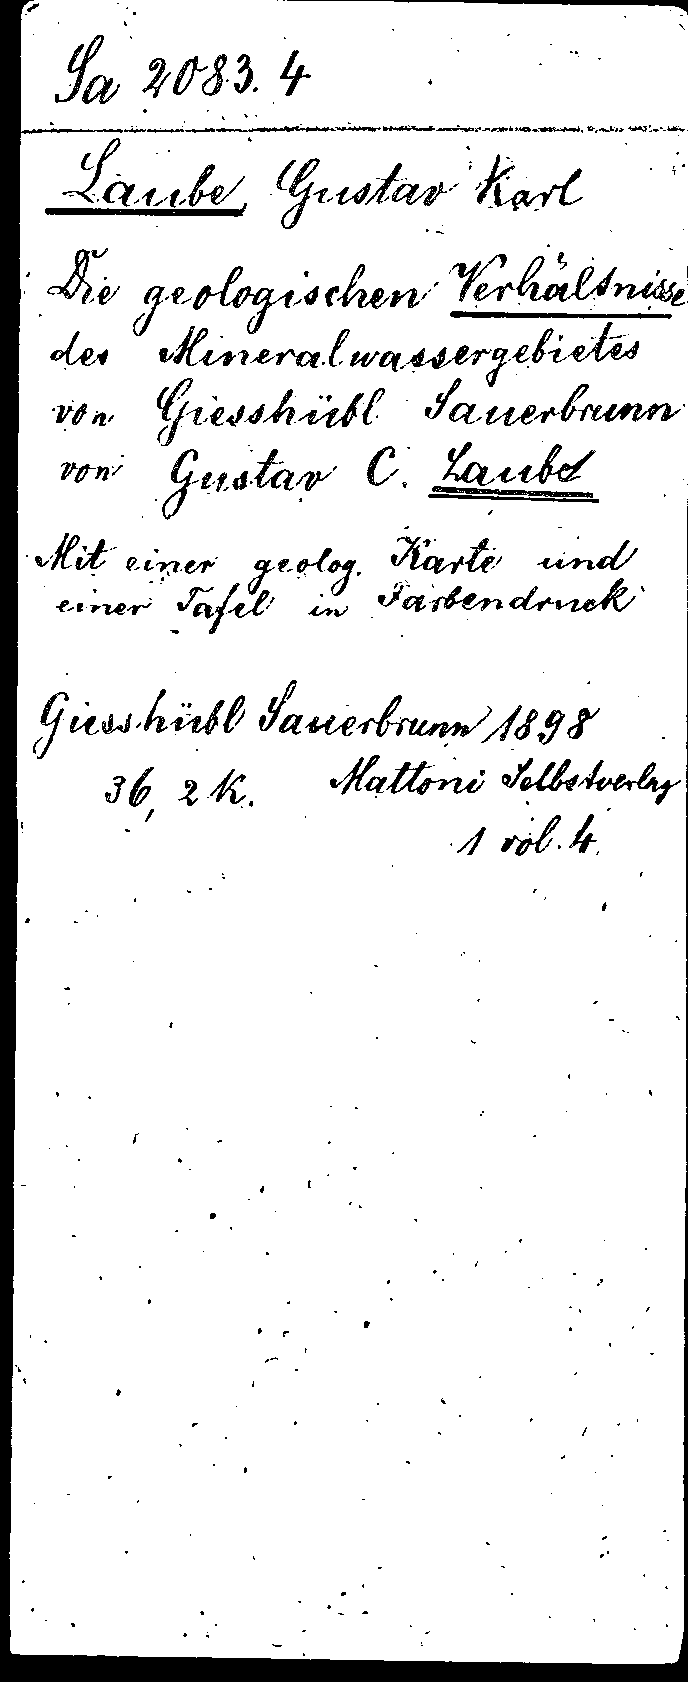 Sa 2083. 4
Laube, Gustav Karl
Die geologischen Verhältnisse
des Mineralwassergebietes
von Giesshübl Sauerbrunn
von Gustav C. Laube
Mit einer geolog. Karte und
einer Tafel in Farbendruck
Giesshübl Sauerbrunn 1898
36, 2 K. Mattoni Selbstverlag
1 vol. 4.